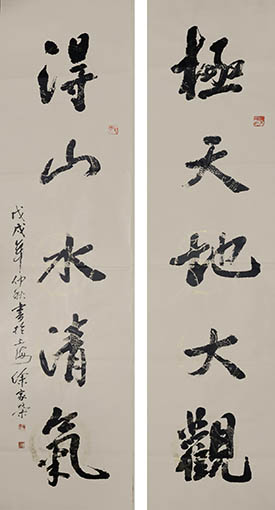 極天地大觀
得山水清氣
戊戌年仲秋書於上海徐家榮